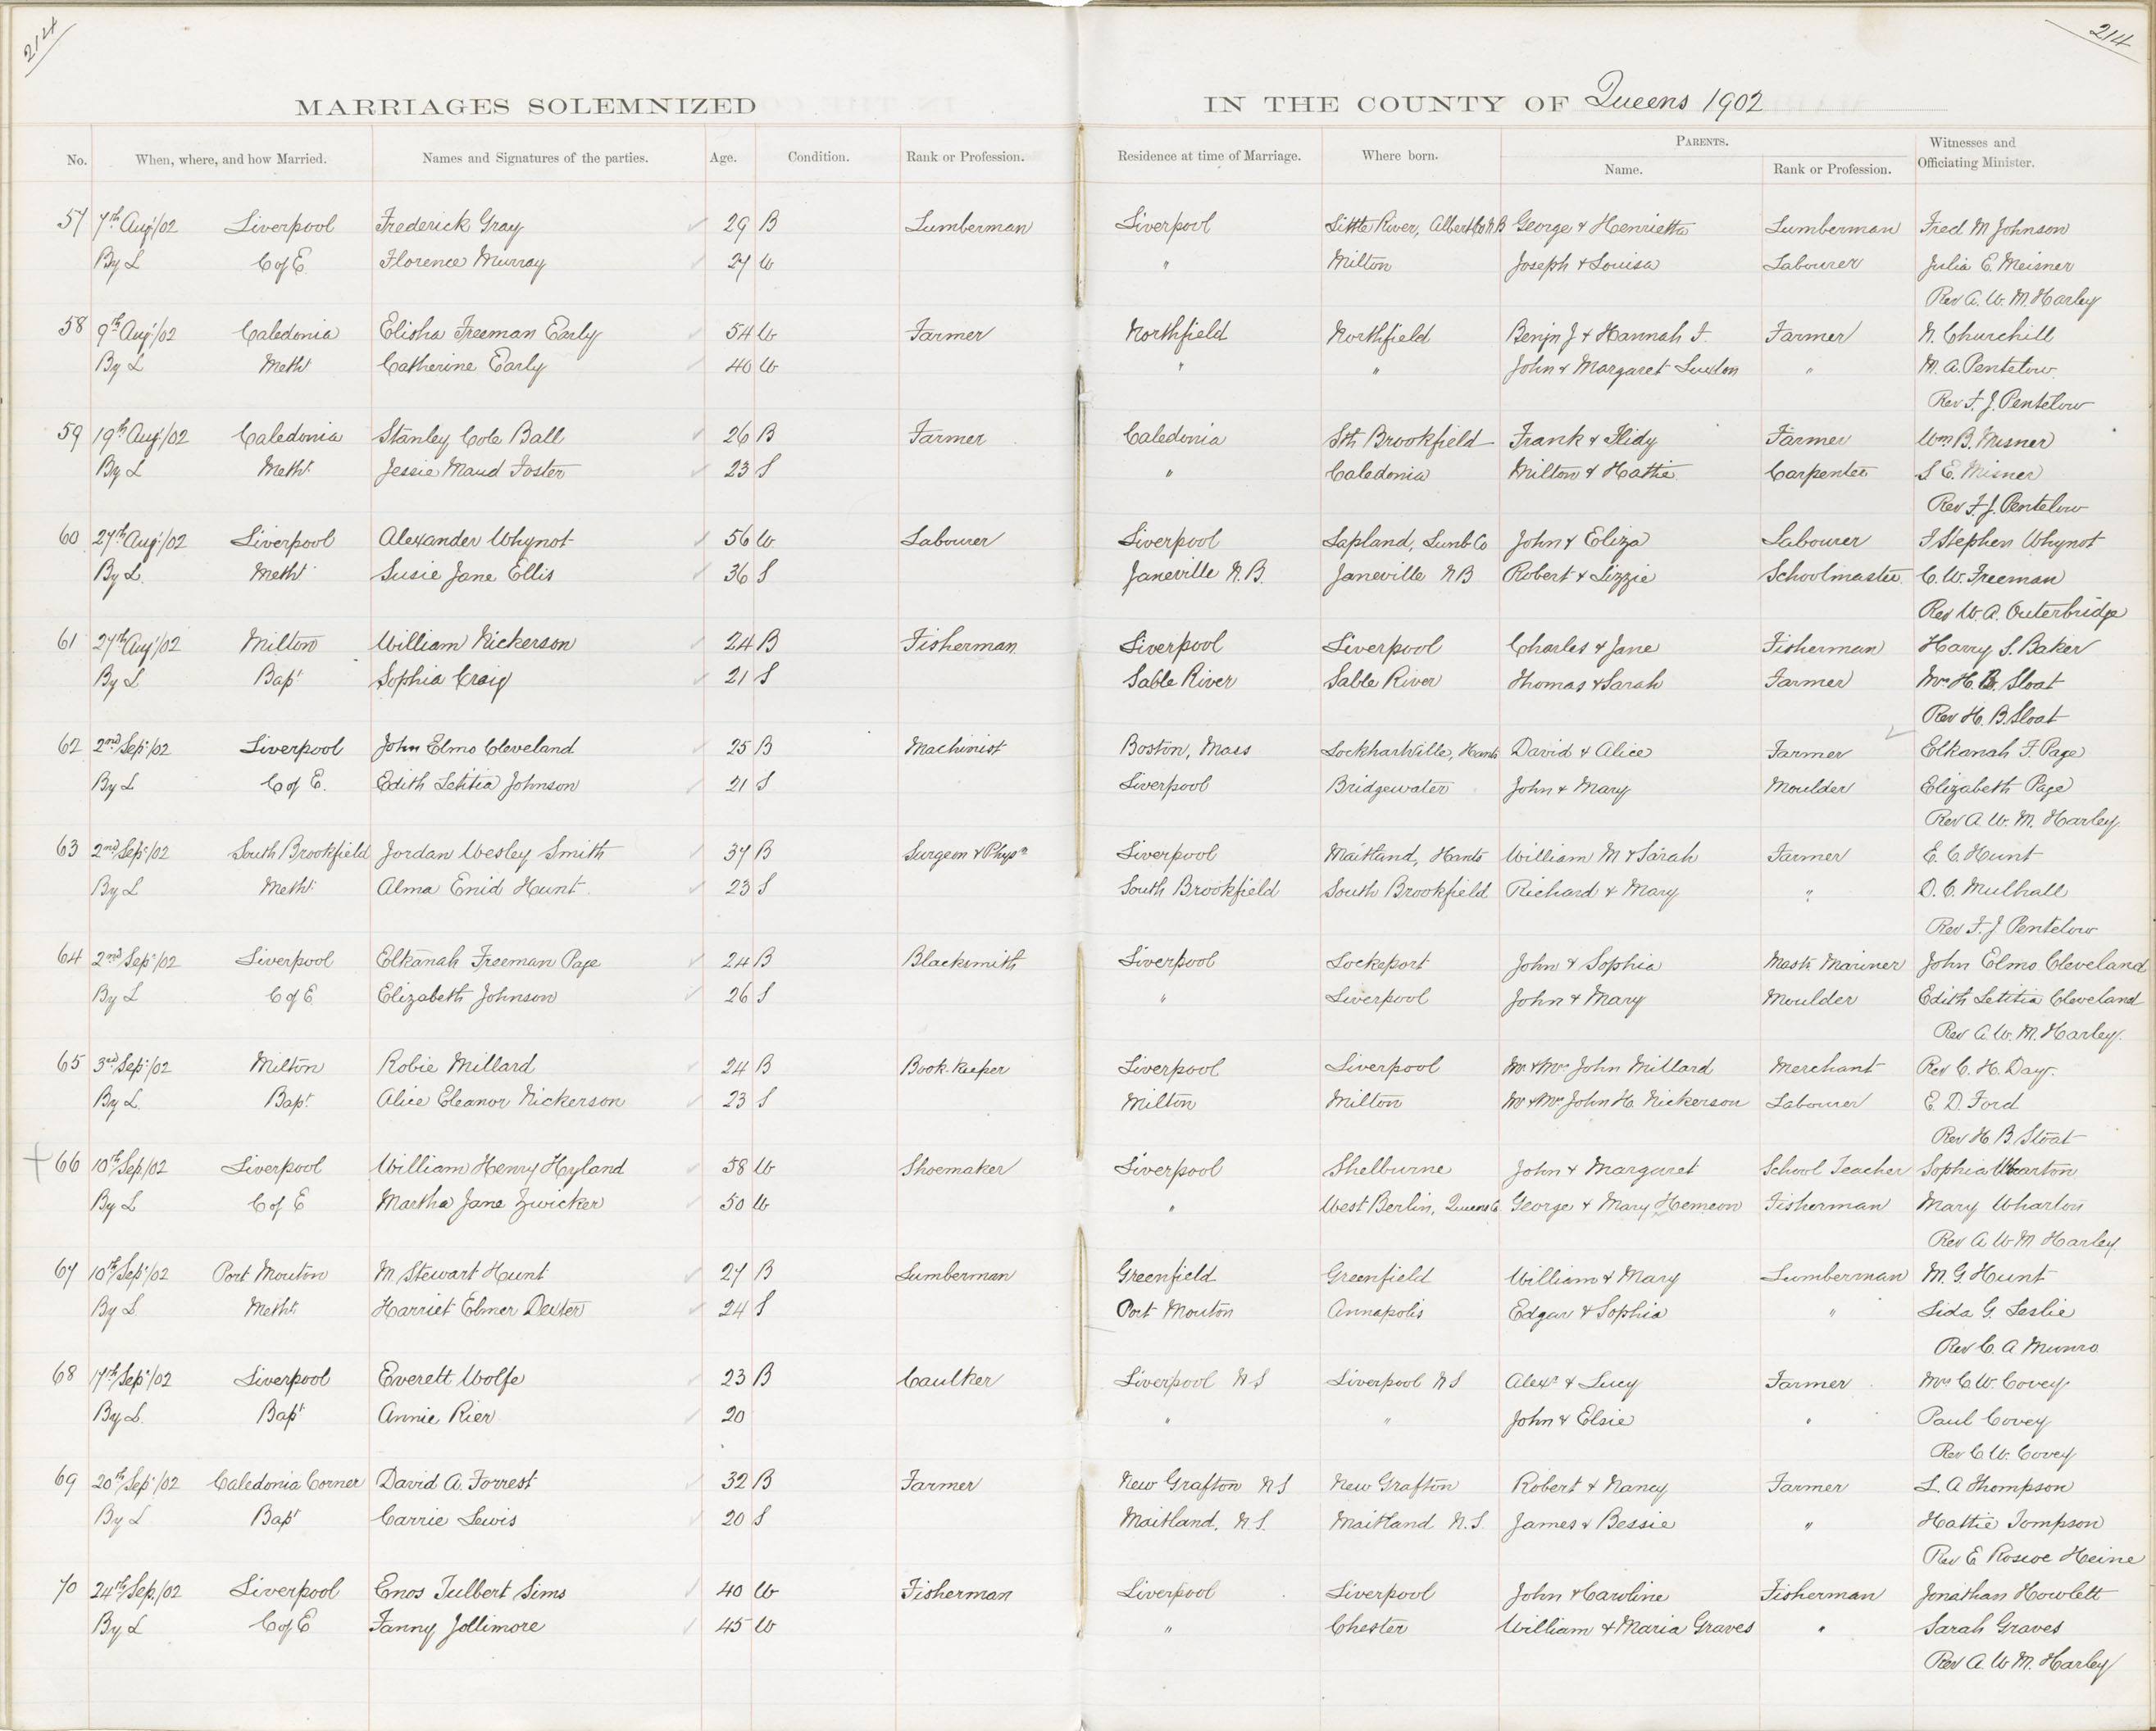 214
214
MARRIAGES SOLEMNIZED IN THE COUNTY OF Queens 1902
No. When, where, and how Married. Names and Signatures of the parties. Age. Condition. Rank or Profession. Residence at time of Marriage. Where born. PARENTS. Name. Rank or Profession. Witnesses and Officiating Minister.
57 7th Aug't/02 Liverpool Frederick Gray 29 B Lumberman Liverpool Little River, Albert Co N B George & Henrietta Lumberman Fred M Johnson
By L C of E Florence Murray 27 W " Milton Joseph & Louisa Labourer Julia E. Meisner
Rev A. W. M. Harley
58 9th Aug't/02 Caledonia Elisha Freeman Early 54 W Farmer Northfield Northfield Benjn J & Hannah F. Farmer N. Churchill
By L Metht Catherine Early 40 W " " John & Margaret Luxton " M. A. Pentelow
Rev F. J. Pentelow
59 19th Aug't/02 Caledonia Stanley Cole Ball 26 B Farmer Caledonia Sth Brookfield Frank & Ilidy Farmer Wm B. Misner
By L Metht Jessie Maud Foster 23 S " Caledonia Milton & Hattie Carpenter S E. Misner
Rev F. J. Pentelow
60 27th Aug't/02 Liverpool Alexander Whynot 56 W Labourer Liverpool Lapland, Lunb Co John & Eliza Labourer I Stephen Whynot
By L. Metht Susie Jane Ellis 36 S Janeville N.B. Janeville N B Robert & Lizzie Schoolmaster C. W. Freeman
Rev W. A. Outerbridge
61 27th Aug't/02 Milton William Nickerson 24 B Fisherman Liverpool Liverpool Charles & Jane Fisherman Harry S. Baker
By L Bapt Sophia Craig 21 S Sable River Sable River Thomas & Sarah Farmer Mrs H. B. Sloat
Rev H. B. Sloat
62 2nd Sept/02 Liverpool John Elmo Cleveland 25 B Machinist Boston, Mass Lockhartville, Hants David & Alice Farmer Elkanah F Page
By L C of E. Edith Letitia Johnson 21 S Liverpool Bridgewater John & Mary Moulder Elizabeth Page
Rev A. W. M. Harley
63 2nd Sept/02 South Brookfield Jordan Wesley Smith 37 B Surgeon & Physn Liverpool Maitland, Hants William M & Sarah Farmer E. C. Hunt
By L Metht Alma Enid Hunt 23 S South Brookfield South Brookfield Richard & Mary " D. C. Mulhall
Rev F. J Pentelow
64 2nd Sept/02 Liverpool Elkanah Freeman Page 24 B Blacksmith Liverpool Lockeport John & Sophia Mastr Mariner John Elmo Cleveland
By L C of E Elizabeth Johnson 26 S " Liverpool John & Mary Moulder Edith Letitia Cleveland
Rev A. W. M. Harley
65 3rd Sept/02 Milton Robie Millard 24 B Book-Keeper Liverpool Liverpool Mr & Mrs John Millard Merchant Rev C. H. Day
By L. Bapt Alice Eleanor Nickerson 23 S Milton Milton Mr & Mrs John H. Nickerson Labourer E. D. Ford
Rev H B. Sloat
66 10th Sep/02 Liverpool William Henry Hyland 58 W Shoemaker Liverpool Shelburne John & Margaret School Teacher Sophia Wharton
By L C of E Martha Jane Zwicker 50 W " West Berlin, Queens Co George & Mary Hemeon Fisherman Mary Wharton
Rev A W M Harley
67 10th Sept/02 Port Mouton M. Stewart Hunt 27 B Lumberman Greenfield Greenfield William & Mary Lumberman M. G. Hunt
By L Metht Harriet Elmer Dexter 24 S Port Mouton Annapolis Edgar & Sophia " Lida G. Leslie
Rev C. A Munro
68 17th Sept/02 Liverpool Everett Wolfe 23 B Caulker Liverpool N S Liverpool N S Alexr & Lucy Farmer Mrs C. W. Covey
By L. Bapt Annie Rier 20 " " John & Elsie " Paul Covey
Rev C. W. Covey
69 20th Sept/02 Caledonia Corner David A. Forrest 32 B Farmer New Grafton N S New Grafton Robert & Nancy Farmer L. A Thompson
By L Bapt Carrie Lewis 20 S Maitland, N.S. Maitland N.S. James & Bessie " Hattie Tompson
Rev E Roscoe Heine
70 24th Sep/02 Liverpool Enos Tulbert Sims 40 W Fisherman Liverpool Liverpool John & Caroline Fisherman Jonathan Howlett
By L C of E Fanny Jollimore 45 W " Chester William & Maria Graves " Sarah Graves
Rev A. W. M. Harley